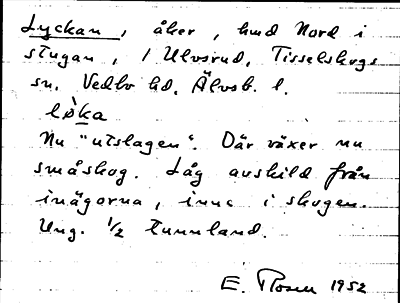 Lyckan, åker, hmd Nord i
stugan, 1 Ulvsrud, Tisselskogs
sn. Vedbo hd. Älvsb. l.
lø̀ka
Nu "utslagen". Där växer nu
småskog. Låg avskild från
inägorna, inne i skogen.
Ung. 1/2 tunnland.
E. Rosen 1952